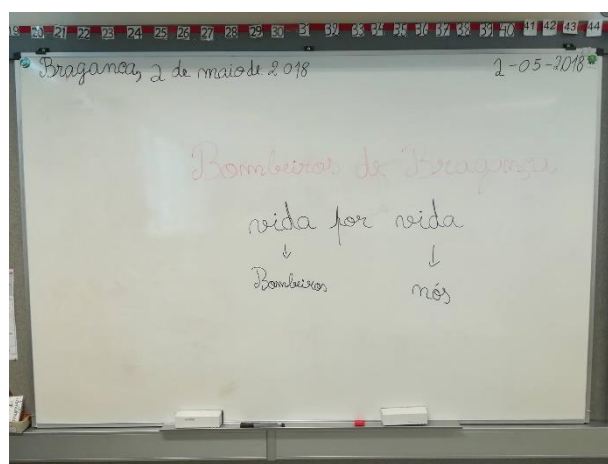 20 21 22 23 24 25 26 27 28 29 30 31 32 33 34 35 36 37 38 39 40 41 42 43 44
Bragança, 2 de maio de 2018 2-05-2018
Bombeiros de Bragança
vida por vida
↓ ↓
Bombeiros nós